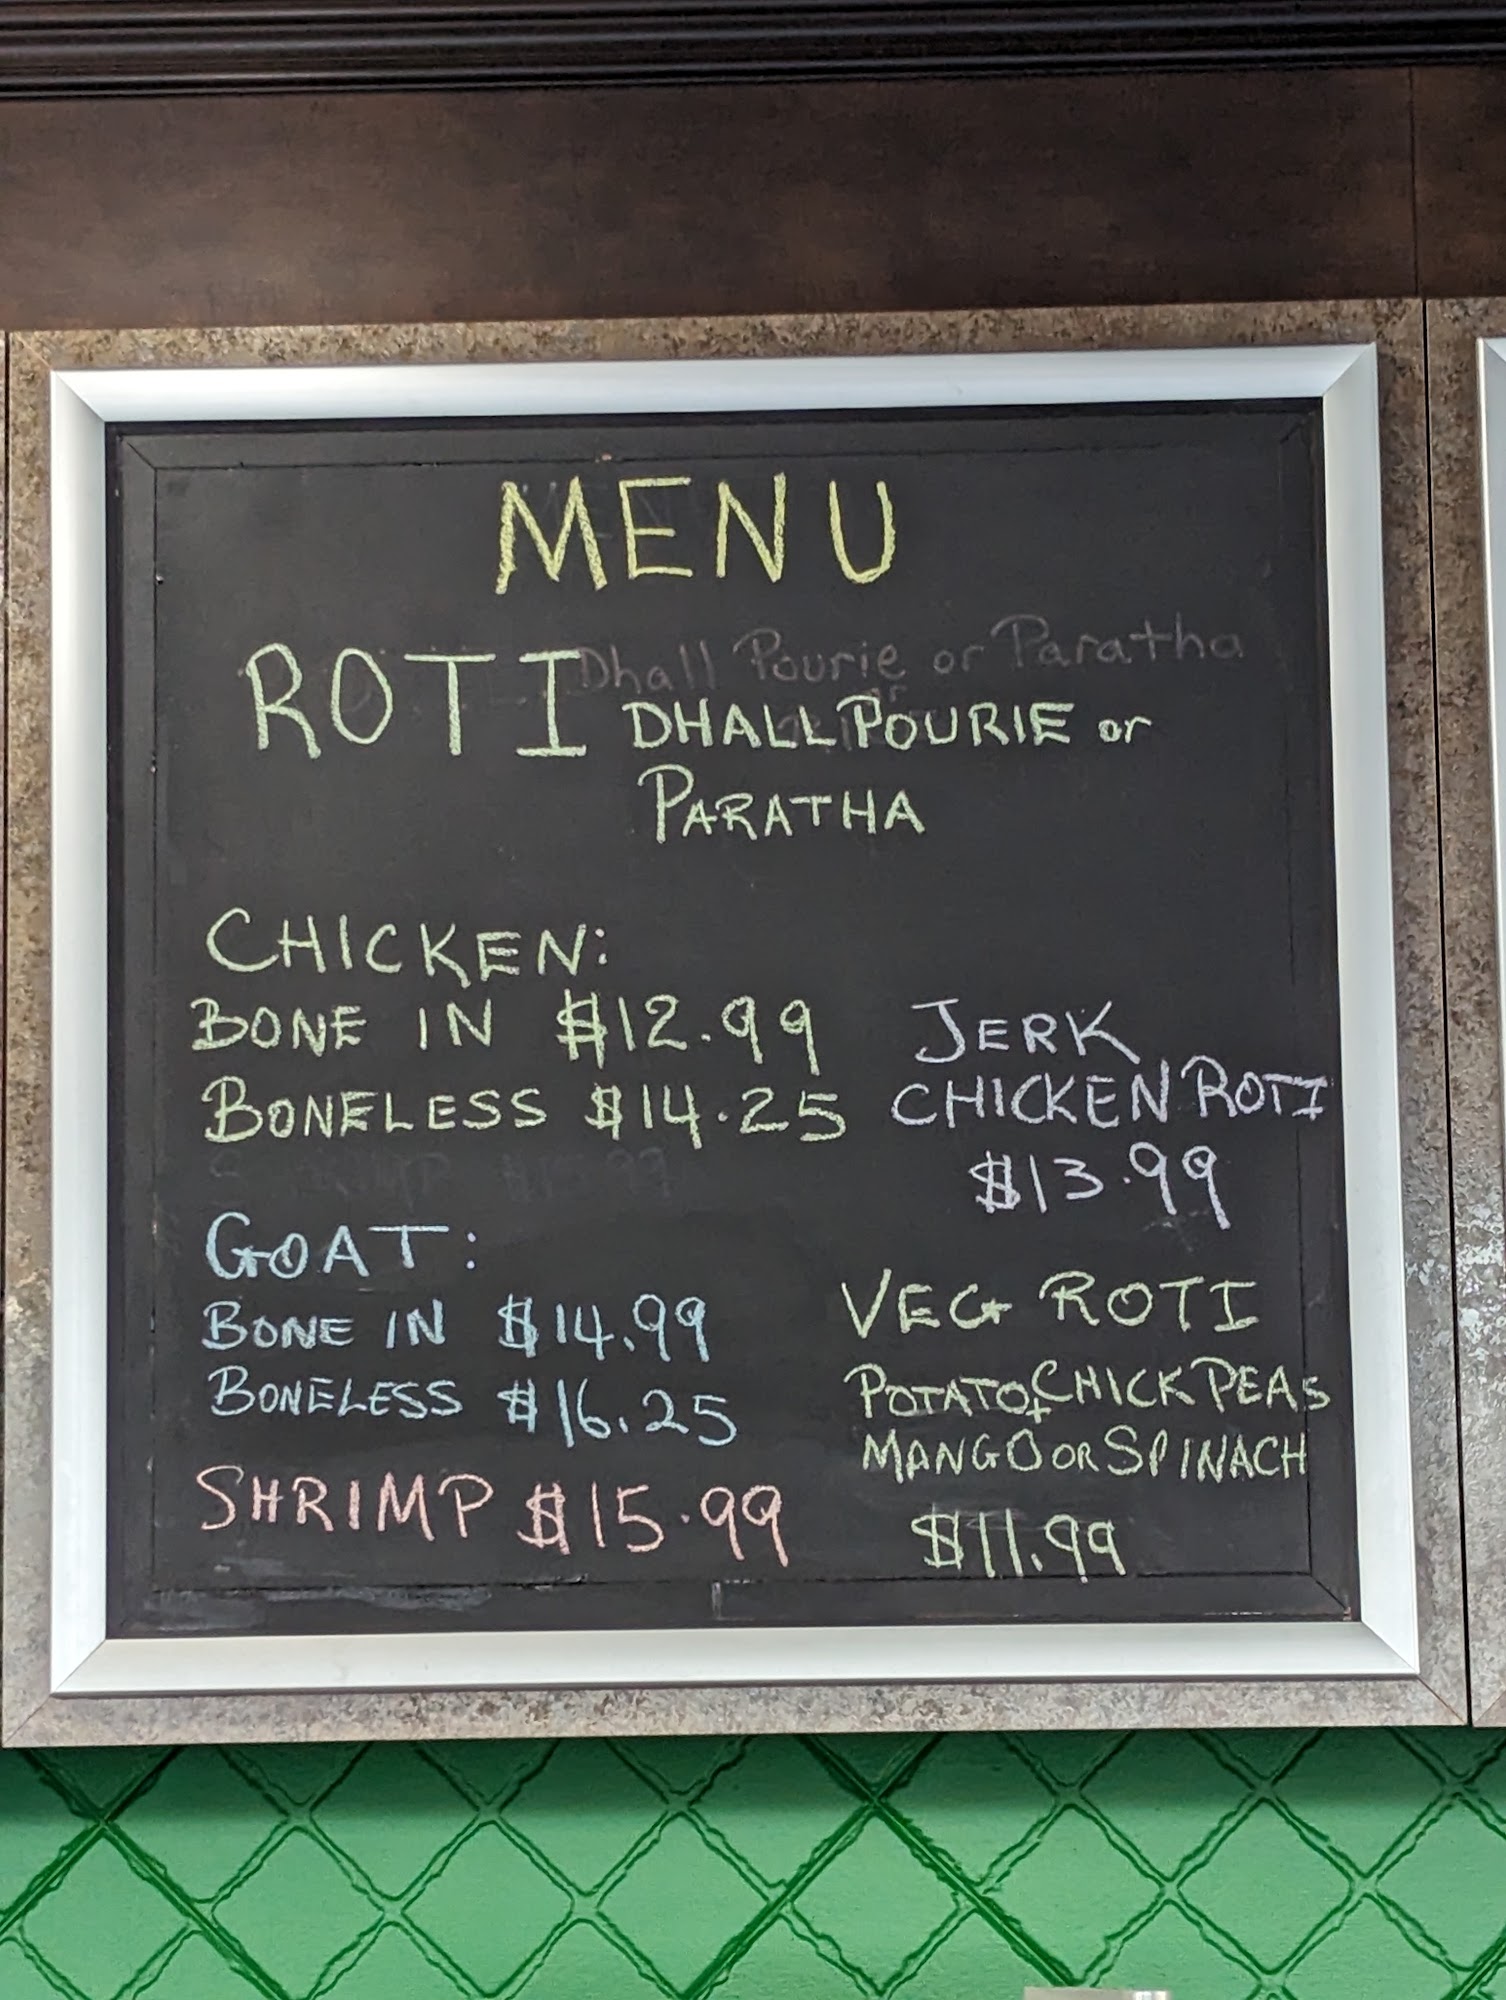 MENU
ROTI Dhall Pourie or Paratha
DHALL POURIE or
PARATHA
CHICKEN:
BONE IN $12.99
BONELESS $14.25
GOAT:
BONE IN $14.99
BONELESS $16.25
SHRIMP $15.99
JERK
CHICKEN ROTI
$13.99
VEG ROTI
POTATO + CHICK PEAS
MANGO OR SPINACH
$11.99